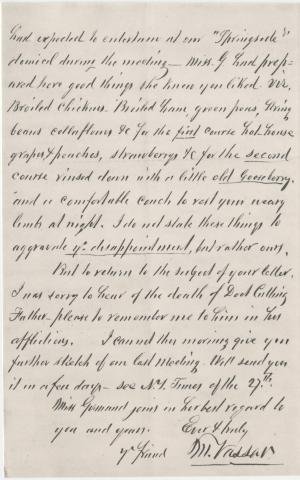 had expected to entertain at our "Springside"
domicil during the meeting — Miss. G had prep-
ared have good things she knew you liked. Viz,
Broiled Chickens. Broild Ham, green peas, String
beans collaflours &c for the first course hot house
grapes & peaches, strawberrys &c for the second
course rinsed down with a little old Gooseberry.
and a comfortable couch to rest your weary
limbs at night. I do not state these things to
aggravate yr. disappointment, but rather ours.
But to return to the subject of your letter.
I was sorry to hear of the death of Doct Cutting
Father please to remember me to him in his
afflictions. I cannot this morning give you
further sketch of our last meeting. Will send you
it in a few days — see N.Y. Times of the 27th.
Miss Germand joins in her best regard to
you and yours. Ever & truly
yr friend M. Vassar